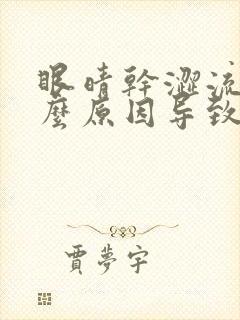 眼睛幹澀流
麽原因导致
賈夢宇